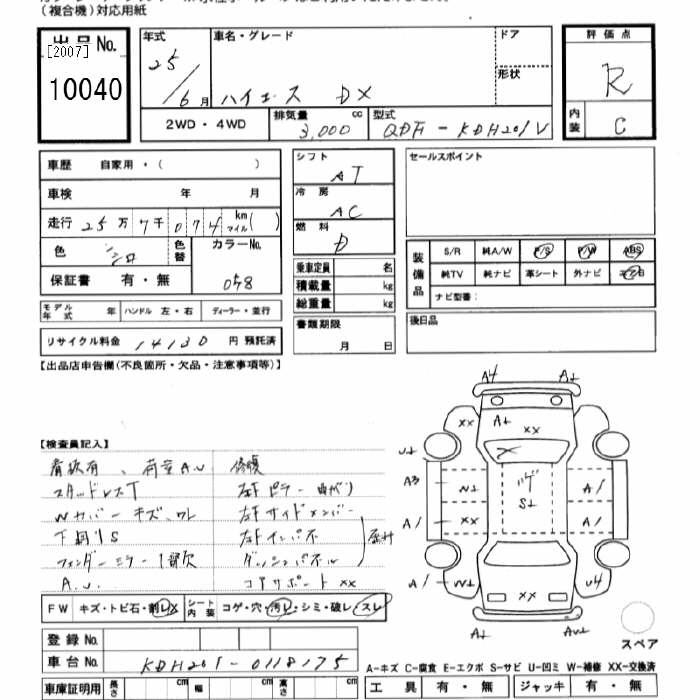 （複合機）対応用紙
出品No.
[2007]
10040
年式
25/6月
車名・グレード
ハイエース DX
ドア
形状
評価点
R
内装
C
2WD・4WD
排気量
3,000cc
型式
QDF-KDH201V
車歴 自家用・( )
車検 年 月
走行 25万7千074 km マイル( )
色 シロ
色替
カラーNo.
058
保証書 有・無
シフト
AT
冷房
AC
燃料
D
乗車定員 名
積載量 kg
総重量 kg
書類期限
月 日
セールスポイント
装備品
S/R 純A/W P/S P/W ABS
純TV 純ナビ 革シート 外ナビ エアB
ナビ型番：
後日品
モデル年式 年 ハンドル 左・右 ディーラー・並行
リサイクル料金 14130 円 預託済
【出品店申告欄(不良箇所・欠品・注意事項等)】
【検査員記入】
看板有、荷室A.U 修復
スタッドレスT 左Fピラー曲がり
Wカバーキズ、ワレ 左Fサイドメンバー
下廻りS 左Fインパネ
フェンダーミラー1ケ欠 ダッシュパネル
A.U. コアサポートXX
FW キズ・トビ石・割レX シート内装 コゲ・穴・汚レ・シミ・破レ・スレ
登録No.
車台No. KDH201-0118175
車庫証明用 長さ cm 幅 cm 高さ cm
A4
A↓
XX
A↓
XX
U↓
A3
W↓
S↓
A/
A/
XX
A/
A/
W↓
U4
XX
A↓
AU↓
スペア
A-キズ C-腐食 E-エクボ S-サビ U-凹ミ W-補修 XX-交換済
工具 有・無 ジャッキ 有・無